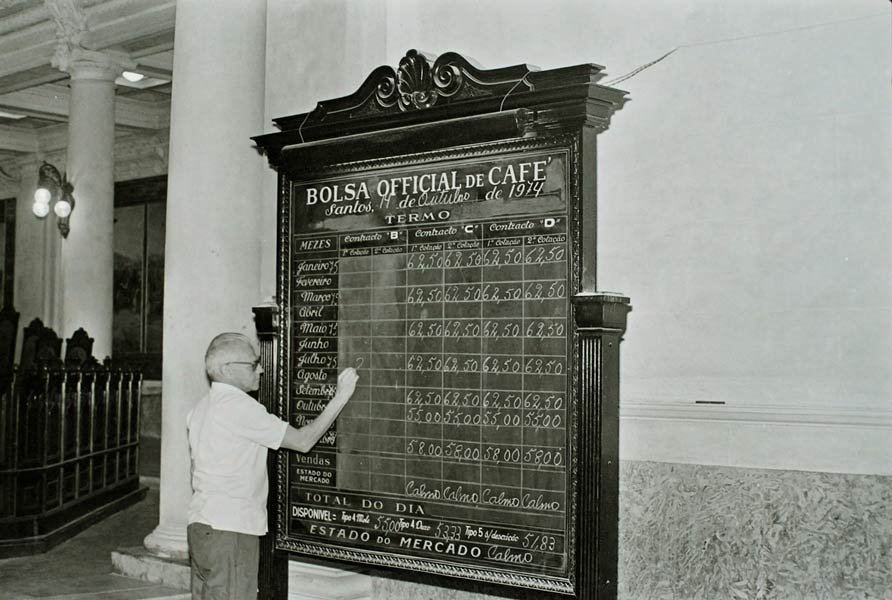 BOLSA OFFICIAL DE CAFE'
Santos, 14 de Outubro de 1974
TERMO
MEZES Contracto "B" Contracto "C" Contracto "D"
1ª Cotação 2ª Cotação 1ª Cotação 2ª Cotação 1ª Cotação 2ª Cotação
Janeiro 75 62,50 62,50 62,50 62,50
Fevereiro
Março 75 62,50 62,50 62,50 62,50
Abril
Maio 75 62,50 62,50 62,50 62,50
Junho
Julho 75 62,50 62,50 62,50 62,50
Agosto
Setembro 62,50 62,50 62,50 62,50
Outubro 55,00 55,00 55,00 55,00
58,00 58,00 58,00 58,00
Vendas
ESTADO DO MERCADO Calmo Calmo Calmo Calmo
TOTAL DO DIA
DISPONIVEL= Tipo 4 Mole 55,00 Tipo 4 Duro 53,33 Tipo 5 s/descrição 51,83
ESTADO DO MERCADO Calmo